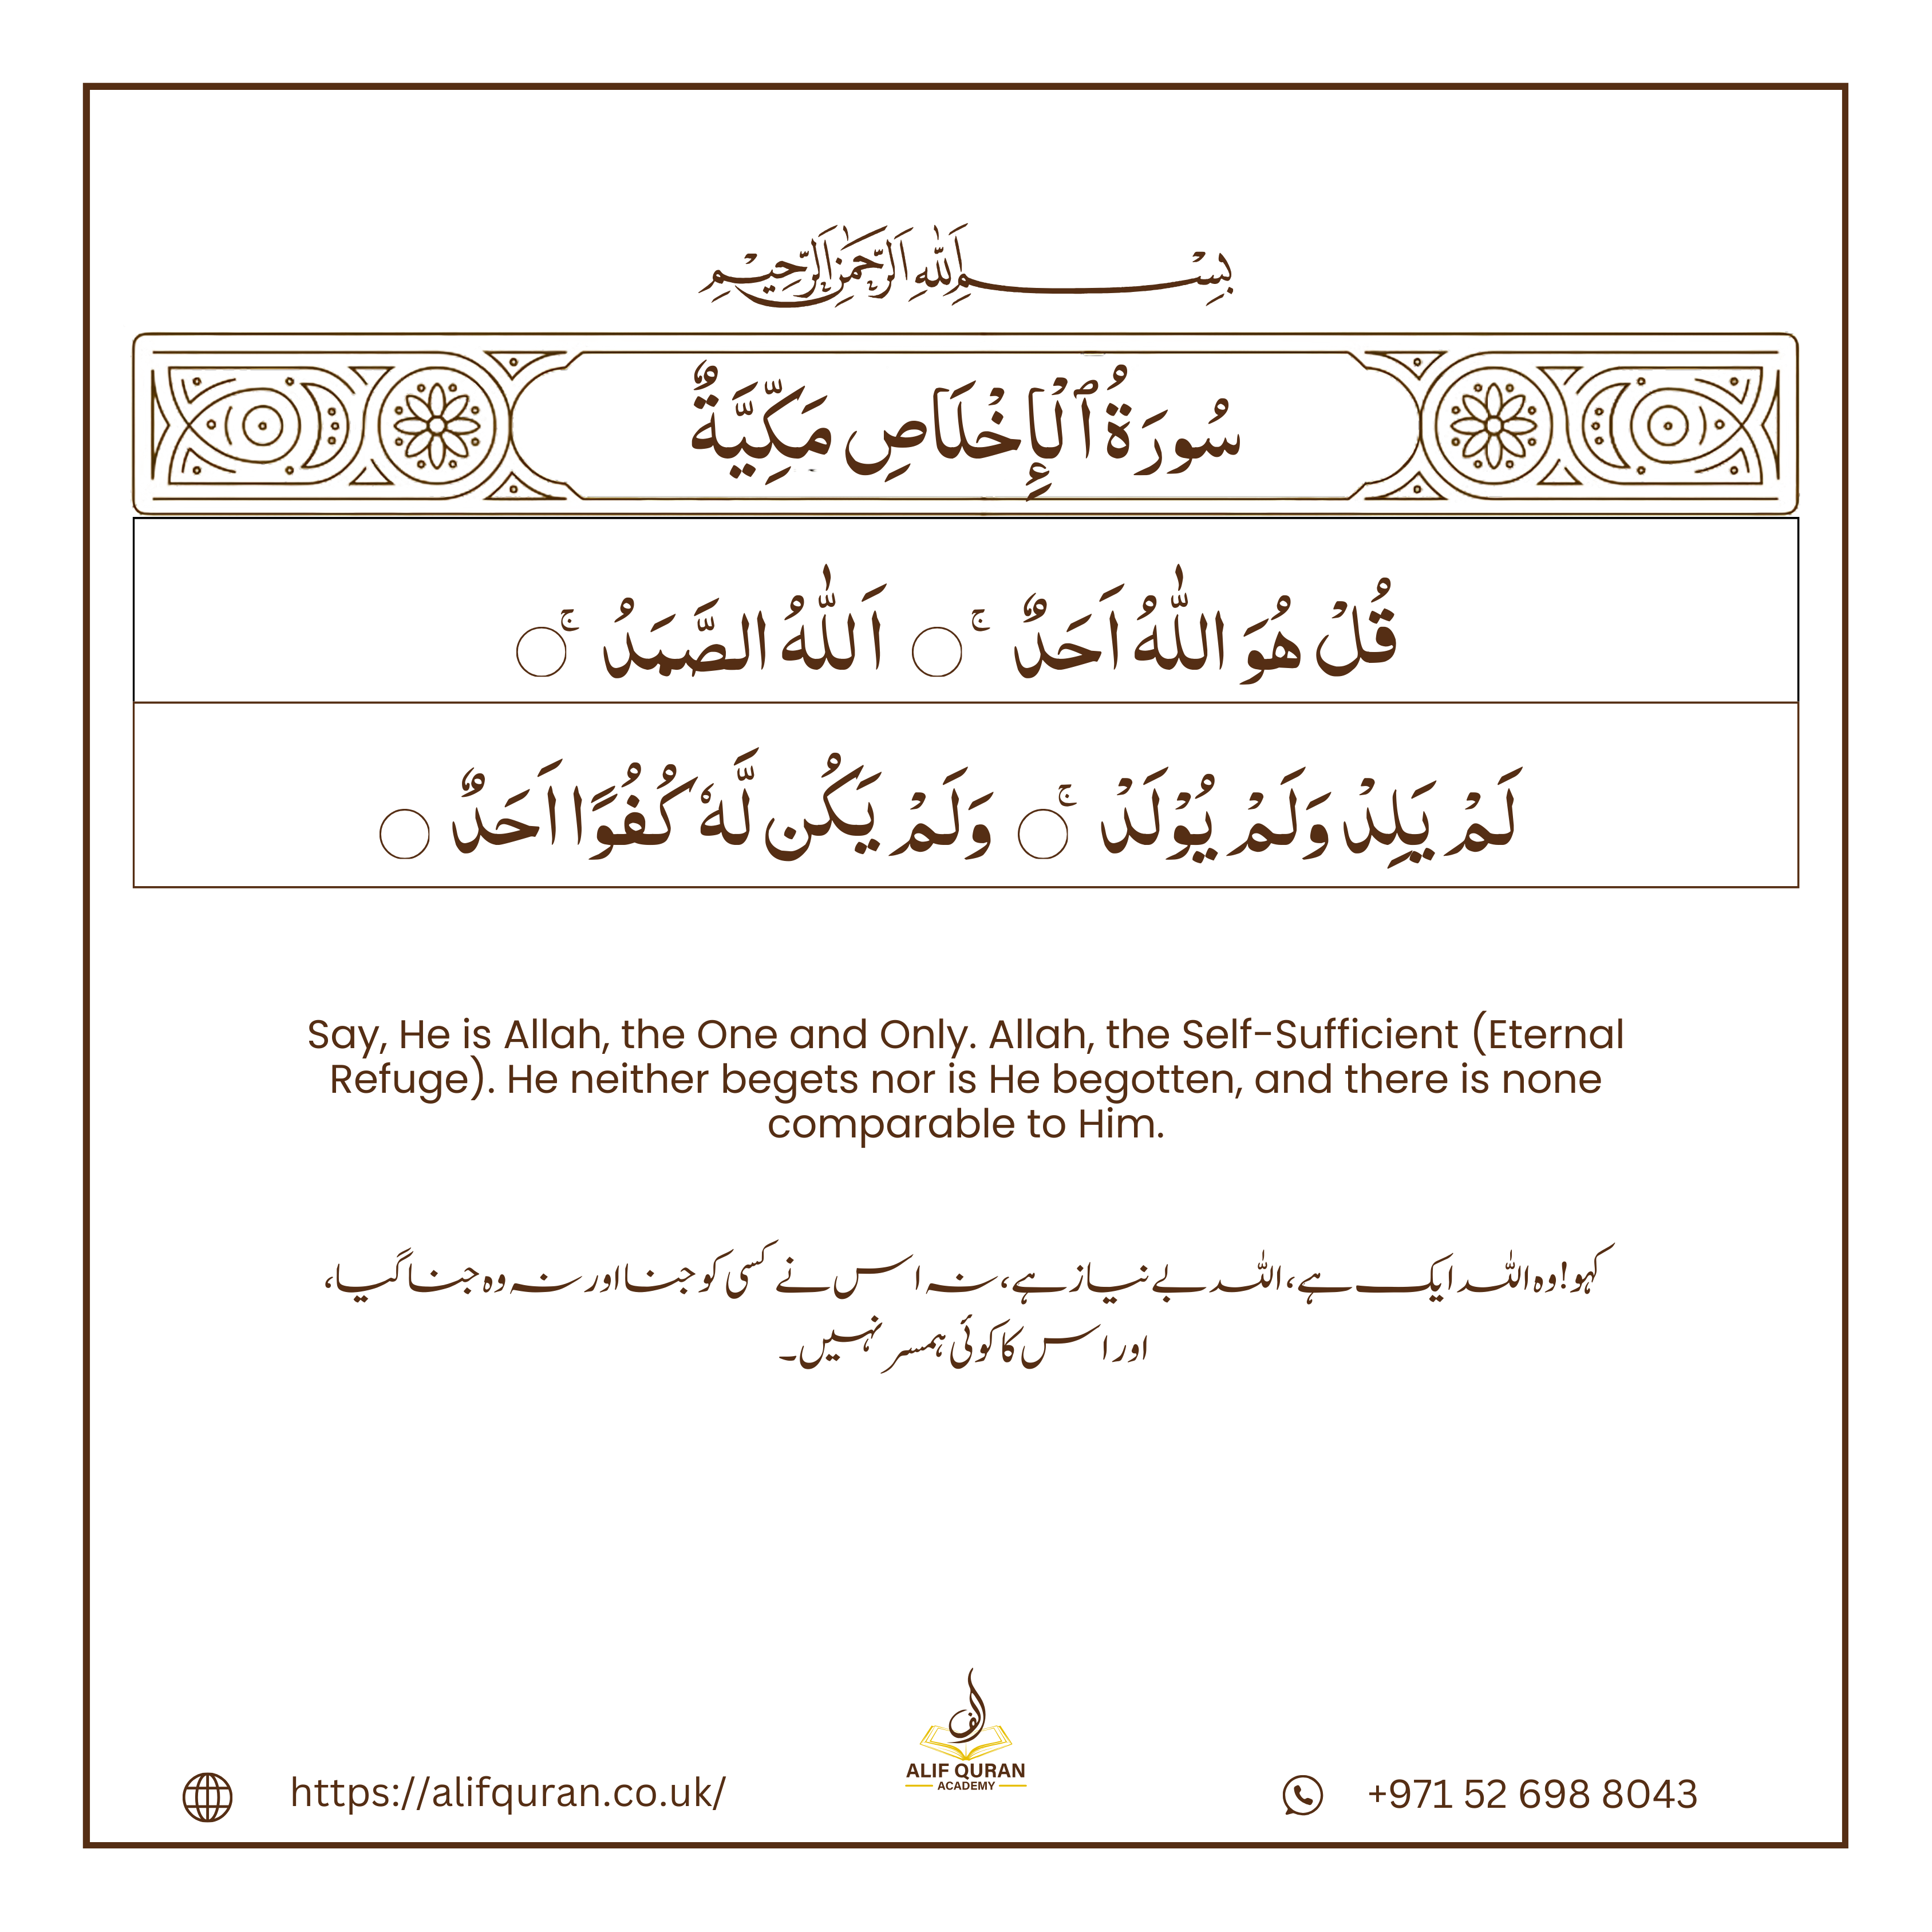 بِسْمِ اللّٰهِ الرَّحْمٰنِ الرَّحِيْمِ
سُورَةُ ٱلْإِخْلَاصِ مَكِّيَّةٌ
قُلْ هُوَ اللّٰهُ اَحَدٌ ۚ ○ اَللّٰهُ الصَّمَدُ ۚ ○
لَمْ يَلِدْ وَلَمْ يُوْلَدْ ۚ ○ وَلَمْ يَكُن لَّهٗ كُفُوًا اَحَدٌ ○
Say, He is Allah, the One and Only. Allah, the Self-Sufficient (Eternal
Refuge). He neither begets nor is He begotten, and there is none
comparable to Him.
کہو! وہ اللہ ایک ہے، اللہ بے نیاز ہے، نہ اس نے کسی کو جنا اور نہ وہ جنا گیا،
اور اس کا کوئی ہمسر نہیں۔
ALIF QURAN
ACADEMY
https://alifquran.co.uk/
+971 52 698 8043